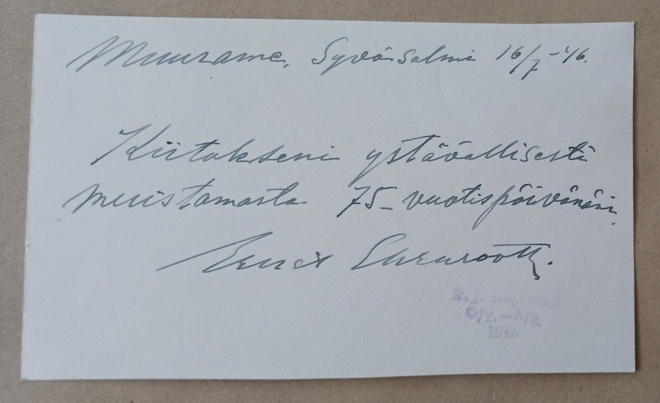 Muurame, Syväsalmi 16/7-46.
Kiitokseni ystävällisestä
muistamasta 75-vuotispäivänäni.
Ehrnrooth.
O/Y. – A/B.
1946